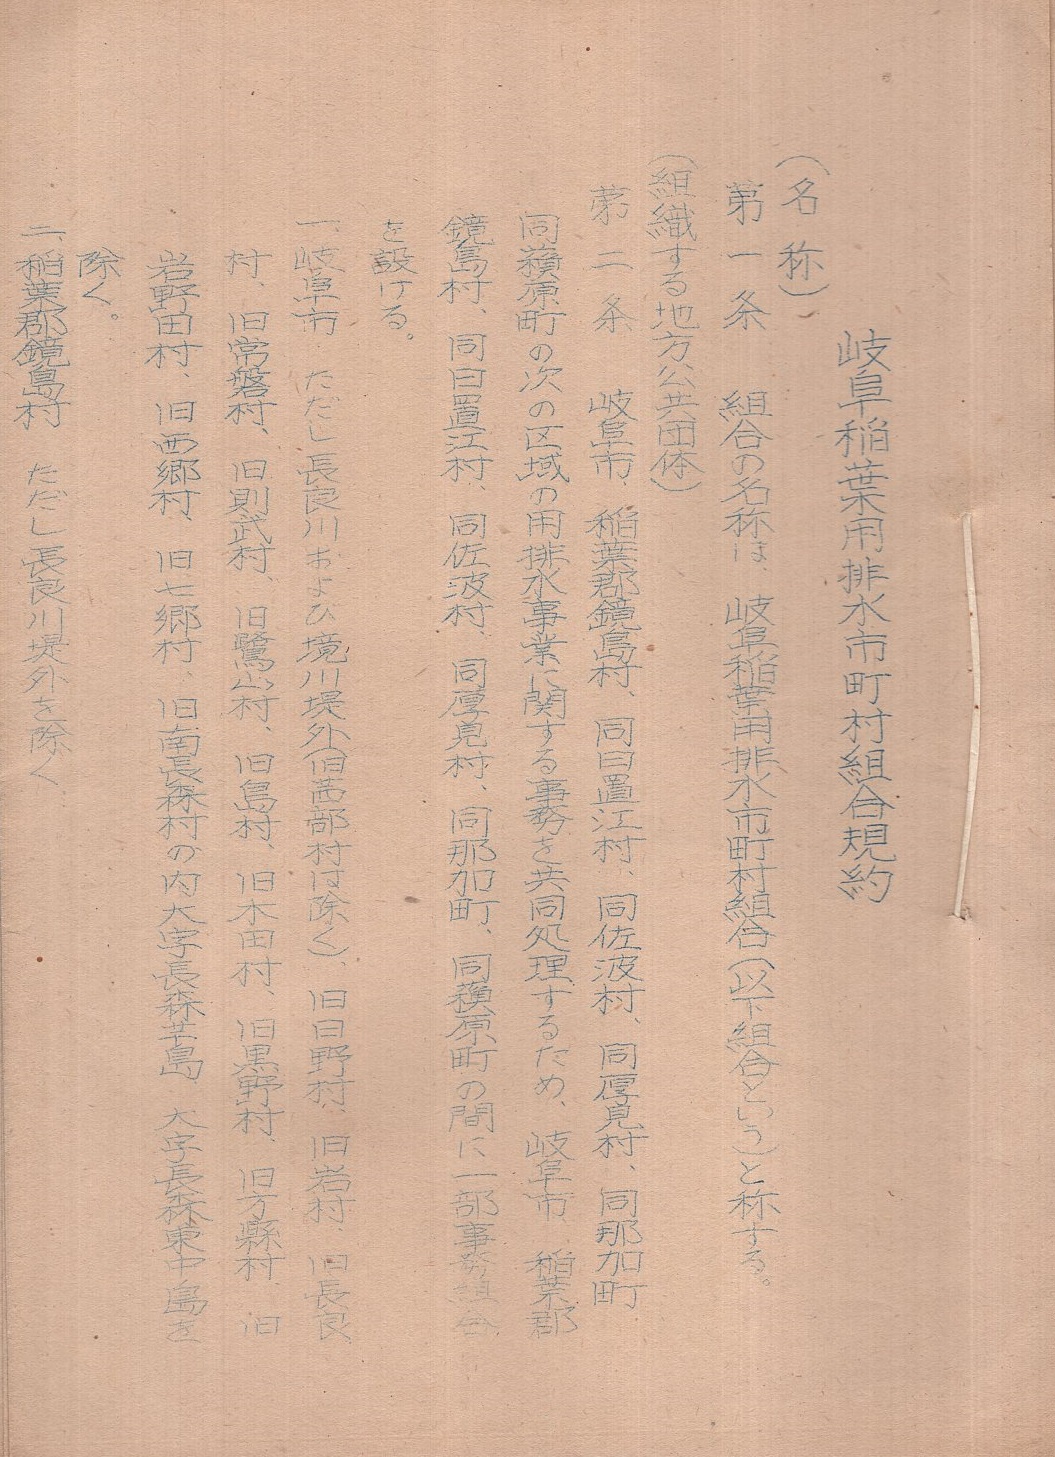 岐阜稲葉用排水市町村組合規約
(名称)
第一条 組合の名称は、岐阜稲葉用排水市町村組合(以下組合という)と称する。
(組織する地方公共団体)
第二条 岐阜市、稲葉郡鏡島村、同日置江村、同佐波村、同厚見村、同那加町
同蘓原町の次の区域の用排水事業に関する事務を共同処理するため、岐阜市、稲葉郡
鏡島村、同日置江村、同佐波村、同厚見村、同那加町、同蘓原町の間に一部事務組合
を設ける。
一、岐阜市 ただし長良川および境川堤外(旧茜部村は除く)、旧日野村、旧岩村、旧長良
村、旧常磐村、旧則武村、旧鷺山村、旧島村、旧木田村、旧黒野村、旧方縣村、旧
岩野田村、旧西郷村、旧七郷村、旧南長森村の内大字長森芋島、大字長森東中島を
除く。
二、稲葉郡鏡島村 ただし長良川堤外を除く、